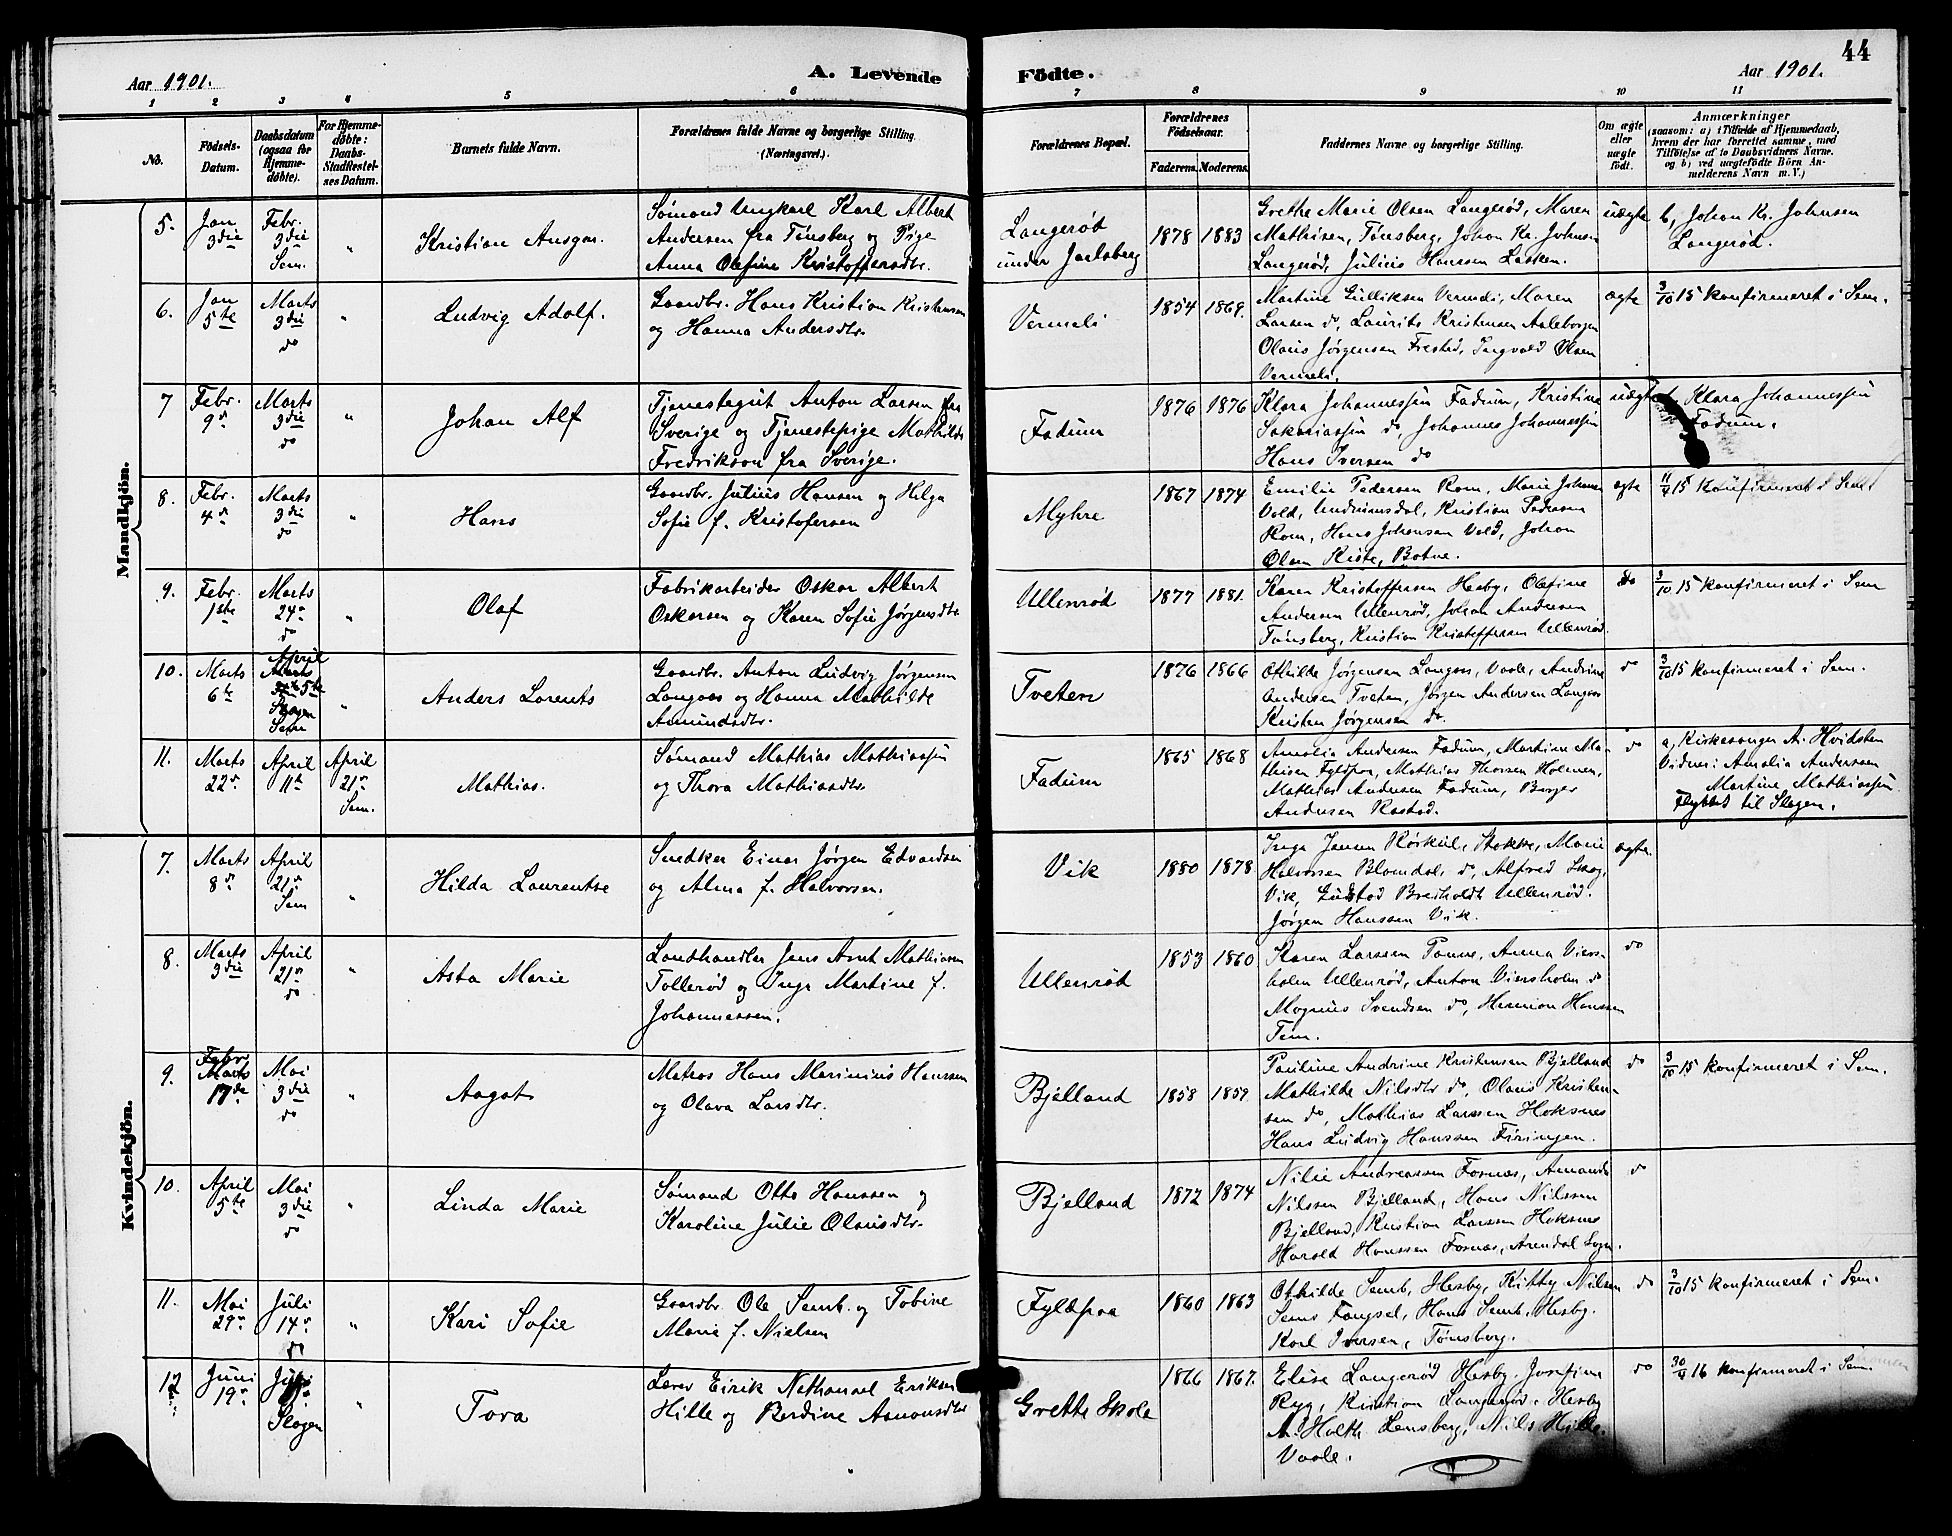 44
Aar 1901.
A. Levende
Födte.
Aar 1901.
1 2 3 4 5 6 7 8 9 10 11
No.
Födsels-
Datum.
Daabsdatum
(ogsaa for
Hjemme-
døbte).
For Hjemme-
døbte:
Daabs-
Stadfæstel-
ses Datum.
Barnets fulde Navn.
Forældrenes fulde Navne og borgerlige Stilling.
(Næringsvei.)
Forældrenes Bopæl.
Forældrenes
Födselsaar.
Faderens. Moderens.
Faddernes Navne og borgerlige Stilling.
Om ægte
eller
uægte
født.
Anmærkninger
(saasom: a) i Tilfælde af Hjemmedaab,
hvem der har forrettet samme, med
Tilföielse af to Daabsvidners Navne.
og b) ved uægtefödte Börn An-
melderens Navn m. V.)
Mandkjön.
5.
Jan
3die
Febr.
3die
Sem.
"
Kristian Ansgar.
Sømand Ungkarl Karl Albert
Andersen fra Tønsberg og Pige
Anna Olefine Kristoffersdtr.
Langerød
under Jarlsberg
1878 1883
Grethe Marie Olsen Langerød, Maren
Mathisen, Tønsberg, Johan Kr. Johnsen
Langerød, Julius Hanssen Lasken.
uægte
b, Johan Kr. Johnsen
Langerød.
6.
Jan
5te
Marts
3die
do
"
Ludvig Adolf.
Gaardbr. Hans Kristian Kristensen
og Hanna Andersdtr.
Vermeli
1854 1869.
Martine Gulliksen Vermeli, Maren
Larsen do, Laurits Kristensen Aaleborgen
Olaus Jørgensen Frestad, Ingvald Olsen
Vermeli.
ægte
3/10 15 konfirmeret i Sem.
7
Febr.
9de
Marts
3die
do
"
Johan Alf
Tjenestegut Anton Larsen fra
Sverige og Tjenestepige Mathilde
Fredrikson fra Sverige.
Fadum
1876 1876
Klara Johannessen Fadum, Kristine
Sakariassen do, Johannes Johannessen
Hans Iversen do
uægte
Klara Johannessen
Fadum.
8.
Febr.
4de
Marts
3die
do
"
Hans
Gaardbr. Julius Hansen og Helga
Sofie f. Kristofersen
Myhre
1867 1874
Emilie Pedersen Rom, Marie Johansen
Vold, Undrumsdal, Kristian Pedersen
Rom, Hans Johansen Vold, Johan
Olsen Kiste, Botne.
ægte
15 konfirmeret i Sem.
9.
Febr.
1ste
Marts
24de
do
"
Olaf
Fabrikarbeider Oskar Albert
Oskarsen og Karen Sofie Jørgensdtr
Ullenrød
1877 1881.
Karen Kristoffersen Hesby, Olefine
Andersen Ullenrød, Johan Andersen
Tønsberg, Kristian Kristoffersen Ullenrød.
do
3/10 15 konfirmeret i Sem
10.
Marts
6te
April
5te
Sem
"
Anders Lorents
Gaardbr. Anton Ludvig Jørgensen
Langaas og Hanna Mathilde
Amundsdtr.
Tveten
1876 1866
Othilde Jørgensen Langaas, Vaale, Andrine
Andersen Tveten, Jørgen Andersen Langaas
Kristen Jørgensen do.
do
3/10 15 konfirmeret i Sem.
11.
Marts
22de
April
11te
April
21de
Sem.
Mathias.
Sømand Mathias Mathiassen
og Thora Mathiasdtr.
Fadum
1865 1868
Amalia Andersen Fadum, Martine Ma-
thisen Fyldpaa, Mathias Thorsen Holmen,
Mathias Andersen Fadum, Borger
Andersen Rastad.
do
a, Kirkesanger A. Hvidsten
Vidner: Amalia Andersen
Martine Mathiassen
Flyttet til Slagen.
Kvindekjön.
7.
Marts
8de
April
21de
Sem
"
Hilda Laurentse
Snedker Einar Jørgen Edvardsen
og Alma f. Halvorsen.
Vik
1880 1878
Inga Jansen Røskul, Stokke, Marie
Halvorsen Blomdal, do, Alfred Skog,
Vik, Gustav Breiholdt Ullenrød.
Jørgen Hanssen Vik.
ægte.
8.
Marts
3die
April
21de
do
"
Asta Marie
Landhandler Jens Arnt Mathiassen
Tollerød og Inga Martine f.
Johannessen.
Ullenrød
1853 1860
Karen Larssen Tanne, Anna Viers-
holm Ullenrød, Anton Viersholm do
Magnus Svendsen do, Herman Hanssen
Tem.
do
9.
Febr.
Marts
17de
Mai
3die
do
"
Aagot
Matros Hans Marinius Hanssen
og Olava Larsdtr.
Bjelland
1858 1859.
Pauline Andrine Kristensen Bjelland
Mathilde Nilsdtr do, Olaus Kristen-
sen do, Mathias Larssen Hoksnes
Hans Ludvig Hanssen Firingen.
do
3/10 15 konfirmeret i Sem.
10.
April
5te
Mai
3die
do
"
Linda Marie
Sømand Otto Hanssen og
Karoline Julie Olausdtr.
Bjelland
1872 1874
Nilie Andreassen Fosnæs, Amanda
Nilssen Bjelland, Hans Nilssen
Bjelland, Kristian Larssen Hoksnes
Harald Hanssen Fosnæs, Arendal Sogn.
do
11.
Mai
29de
Juli
14de
do
"
Kari Sofie
Gaardbr. Ole Semb. og Tobine
Marie f. Nielsen
Fyldpaa
1860 1863
Othilde Semb, Hesby, Kitty Nilsen
Sems Fængsel, Hans Semb, Hesby.
Karl Iversen, Tønsberg.
do
3/10 15 konfirmeret i Sem.
12
Juni
19de
Slagen
"
Tora
Lærer Eirik Nathanael Eriksen
Hille og Berdine Asmonsdtr
Grette Skole
1866 1867.
Elise Langerød Hesby, Josefine
Ryg, Kristian Langerød, Hesby
A. Holth Lensberg, Nils Hille
Vaale.
do
16 konfirmeret i Sem.